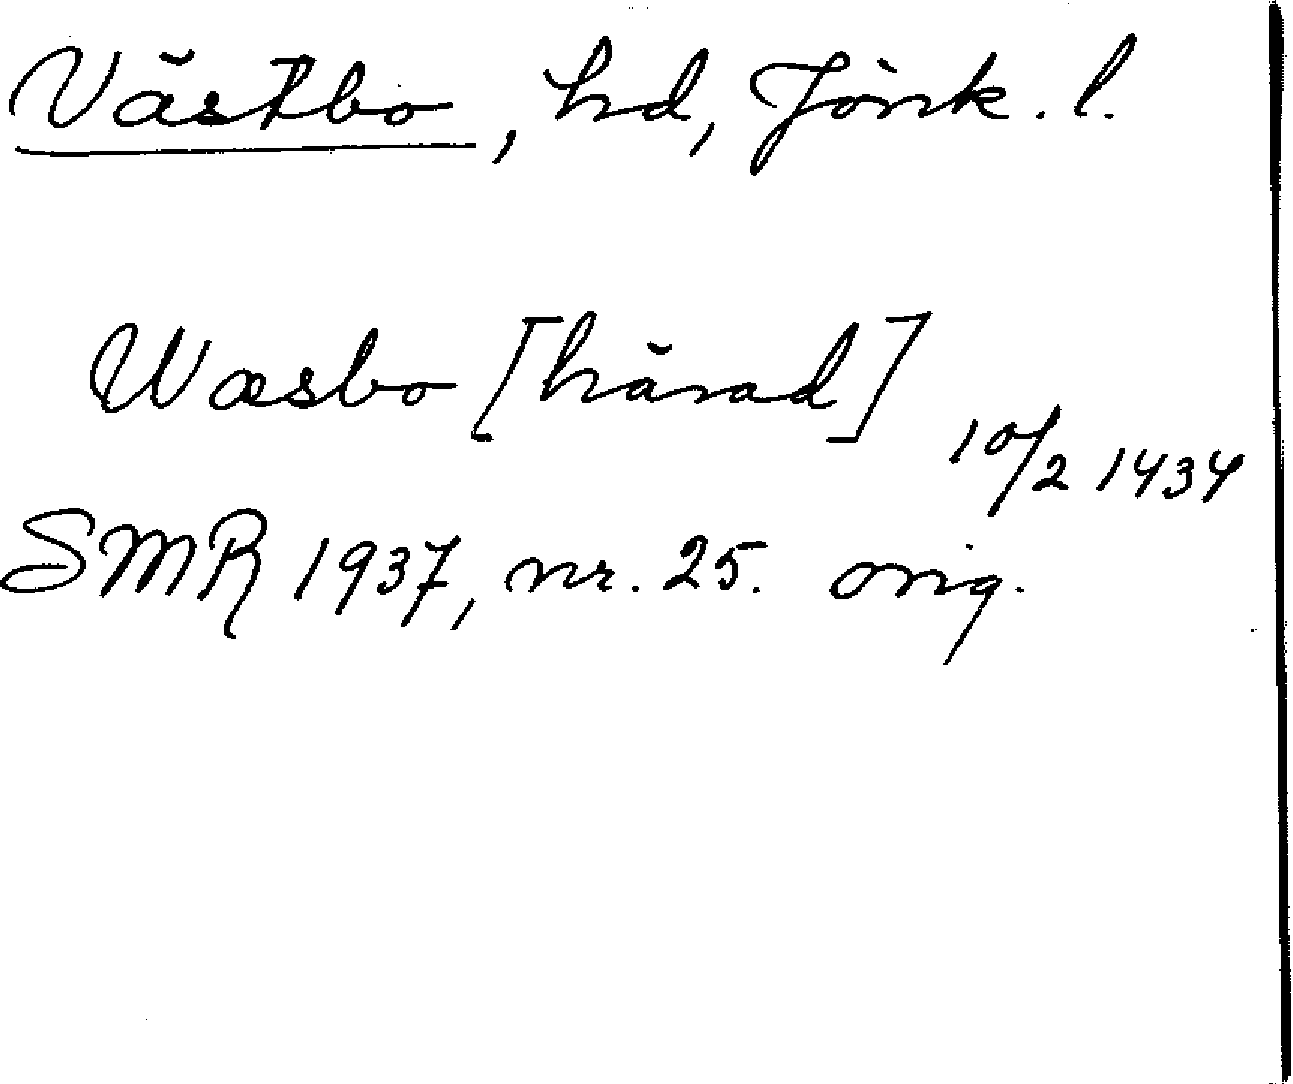 Västbo, hd, Jönk. l.
Wæsbo [härad]
10/2 1434
SMR 1937, nr. 25. orig.